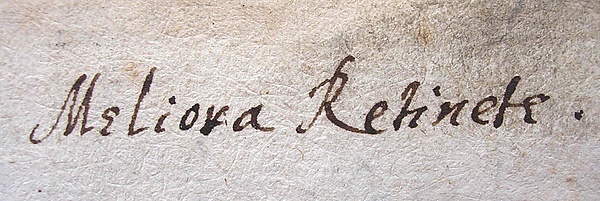 Meliora Retinete.